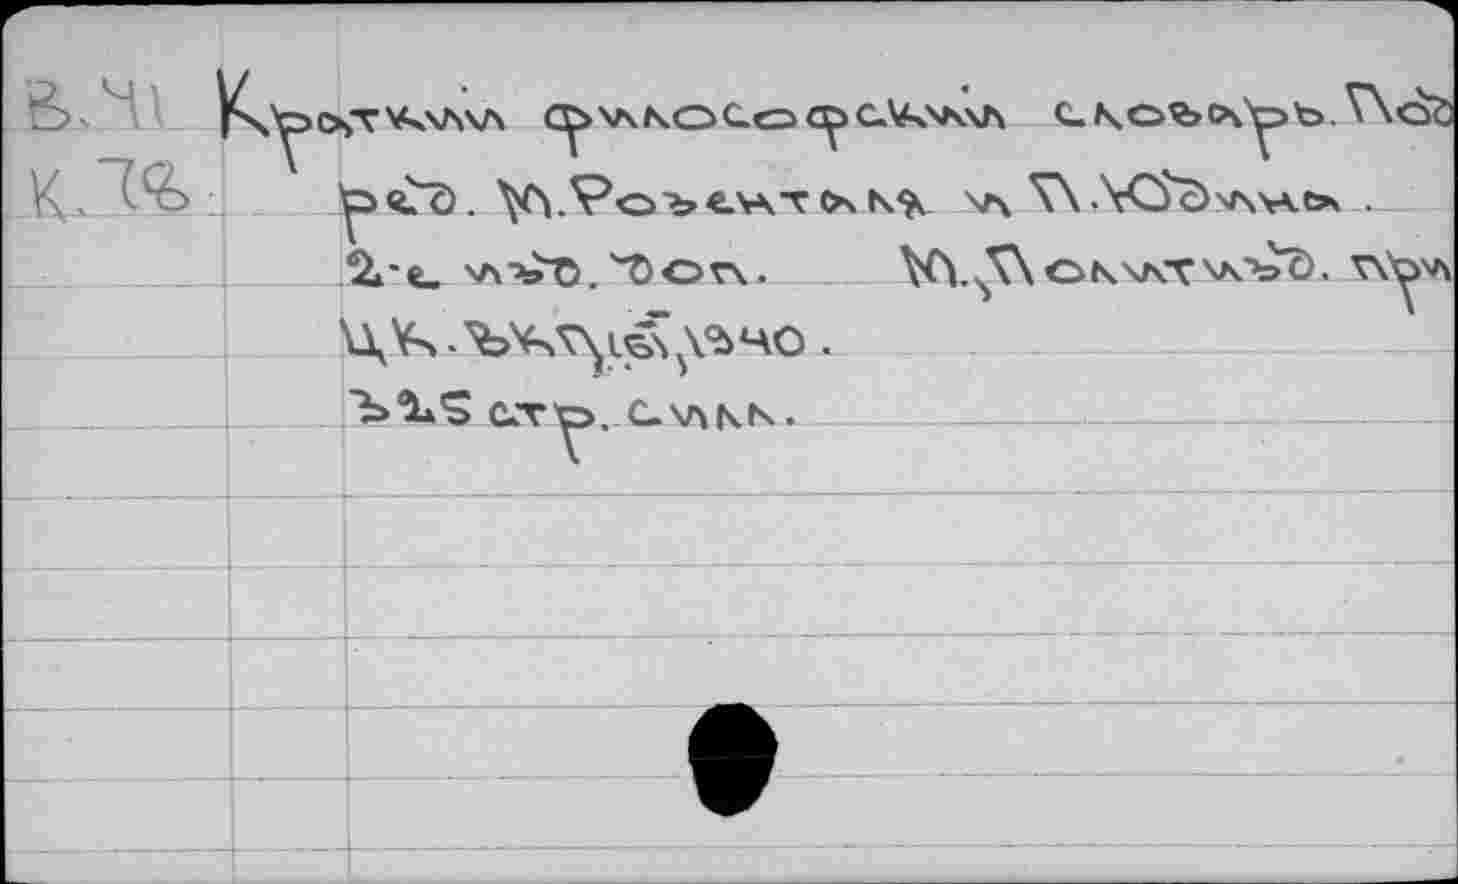 В.41 Краткий философский словарь. Под
К.78. ред. М.Розенталя и П.Юдина.
2-е изд. доп. М., Политизд. при
ЦК.ВКП(б), 1940.
325 стр. с илл.